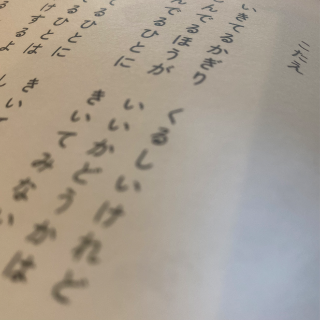 こたえ
いきてるかぎり
くるしいけれど
んでるほうが
いいかどうかは
んでるひとに
きいてみない
てるひとに
きい
するとは
るよ